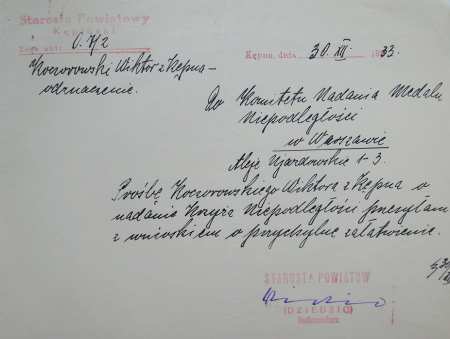 Starosta Powiatowy
Kępiński
V. 7/2
Kępno, dnia 30. XII. 1933.
Koczorowski Wiktor z Kępna -
odznaczenie.
Do Komitetu Nadania Medalu
Niepodległości
w Warszawie
Aleje Ujazdowskie 1-3.
Prośbę Koczorowskiego Wiktora z Kępna o
nadanie Krzyża Niepodległości przesyłam
z wnioskiem o przychylne załatwienie.
STAROSTA POWIATOW
(DZIEDZIC)